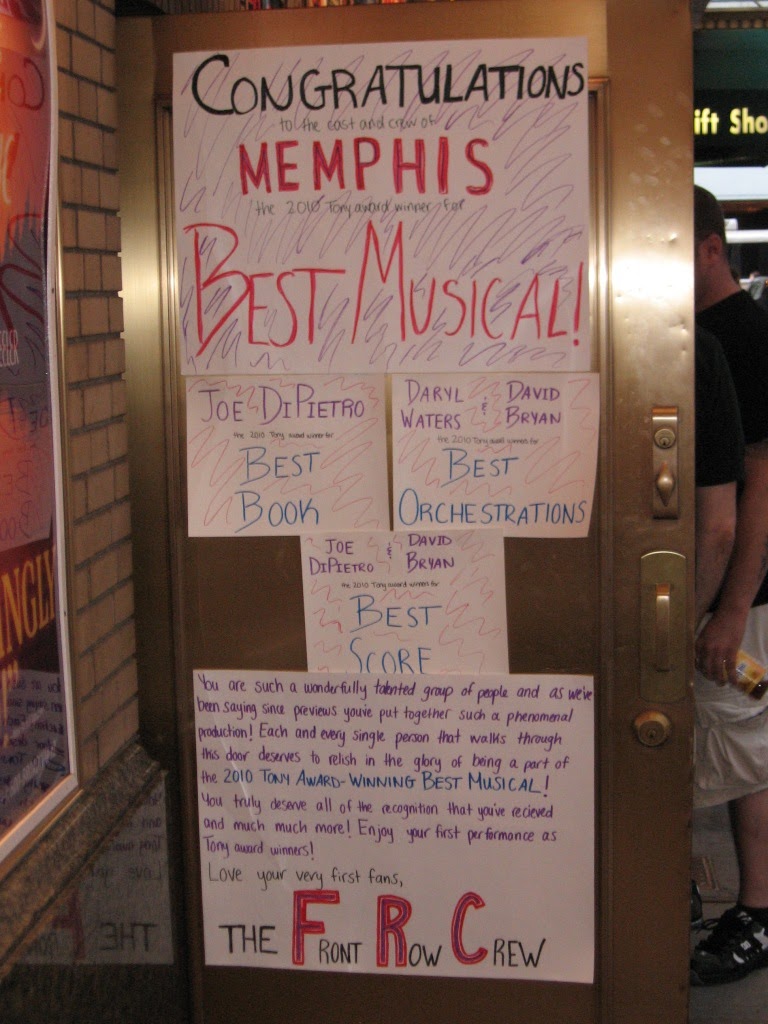 CONGRATULATIONS
to the cast and crew of
MEMPHIS
the 2010 Tony award winner for
BEST MUSICAL!
JOE DIPIETRO
the 2010 Tony award winner for
BEST
BOOK
DARYL & DAVID
WATERS BRYAN
the 2010 Tony award winners for
BEST
ORCHESTRATIONS
JOE & DAVID
DIPIETRO BRYAN
the 2010 Tony award winners for
BEST
SCORE
You are such a wonderfully talented group of people and as we've
been saying since previews you've put together such a phenomenal
production! Each and every single person that walks through
this door deserves to relish in the glory of being a part of
the 2010 TONY AWARD-WINNING BEST MUSICAL!
You truly deserve all of the recognition that you've recieved
and much much more! Enjoy your first performance as
Tony award winners!
Love your very first fans,
THE FRONT ROW CREW
ift Sho
INGLY